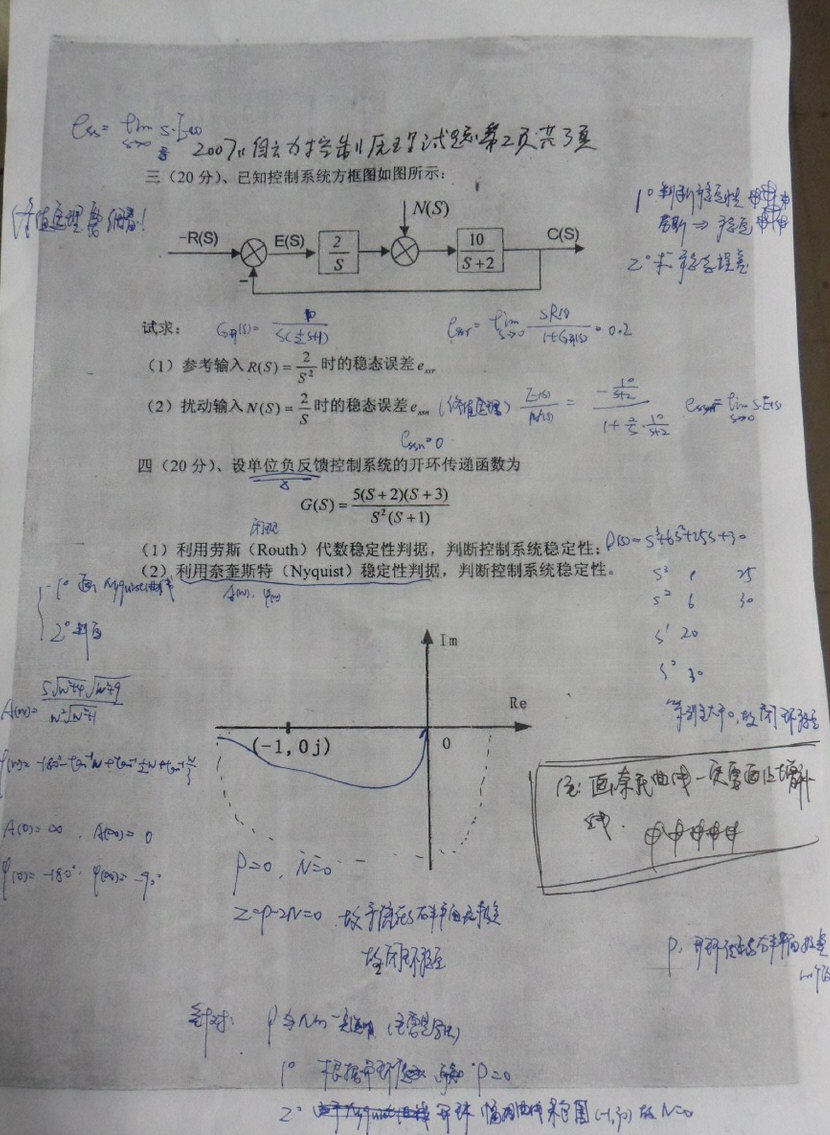 ess= lim s·E(s)
s→0
2007年自动控制原理试题 第2页 共3页
三（20分）、已知控制系统方框图如图所示：
终值定理要细看!
1° 判断稳定性
劳斯 ⇒ 稳定
2° 求稳态误差
N(S)
-R(S) E(S) 2/S 10/(S+2) C(S)
−
试求：
G开(s)= 10/(s(½s+1))
essr= lim s→0 sR(s)/(1+G开(s)) = 0.2
（1）参考输入R(S)=2/S²时的稳态误差e_ssr
（2）扰动输入N(S)=2/S时的稳态误差e_ssn
(终值定理) E(s)/N(s) = −(10/(s+2))/(1+(2/s)·(10/(s+2)))
essn= lim s→0 sE(s)
essn=0
四（20分）、设单位负反馈控制系统的开环传递函数为
G(S)=5(S+2)(S+3)/(S²(S+1))
闭环
（1）利用劳斯（Routh）代数稳定性判据，判断控制系统稳定性；
D(s)=s³+6s²+25s+30
（2）利用奈奎斯特（Nyquist）稳定性判据，判断控制系统稳定性。
A(w), φ(w)
s³ 1 25
s² 6 30
s¹ 20
s⁰ 30
第一列全大于0,故闭环稳定
1° 画Nyquist曲线
2° 判断
A(w)= 5√(w²+4)√(w²+9)/(w²√(w²+1))
φ(w)= -180°-tan⁻¹w+tan⁻¹½w+tan⁻¹w/3
A(0)=∞ , A(∞)=0
φ(0)=-180° φ(∞)=-90°
Im
Re
(-1,0j)
0
注: 画奈氏曲线一定要画上增补线.
P=0, N=0
Z=P-2N=0
故闭环稳定
P: 开环传函右半平面极点的个数
1° 根据开环 P=0
2° 开环幅相曲线未包围(-1,j0)故N=0